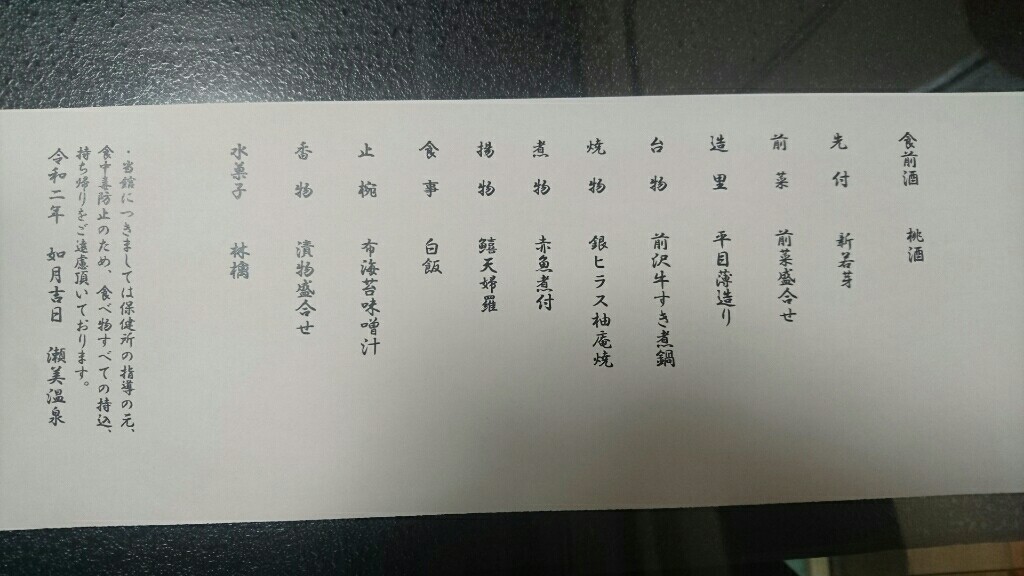 食前酒　桃酒
先付　新若芽
前菜　前菜盛合せ
造里　平目薄造り
台物　前沢牛すき煮鍋
焼物　銀ヒラス柚庵焼
煮物　赤魚煮付
揚物　鱚天婦羅
食事　白飯
止椀　布海苔味噌汁
香物　漬物盛合せ
水菓子　林檎
・当館につきましては保健所の指導の元、
食中毒防止のため、食べ物すべての持込、
持ち帰りをご遠慮頂いております。
令和二年　如月吉日　瀬美温泉